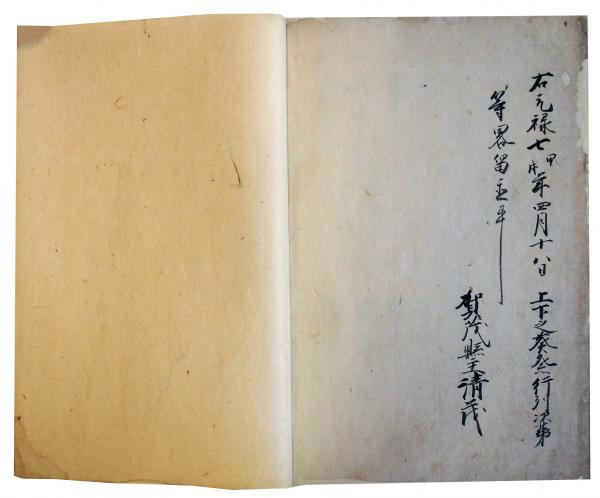 右元禄七甲戌年四月十八日上下之葵祭行列次第
等畧留置畢
賀茂縣主清茂